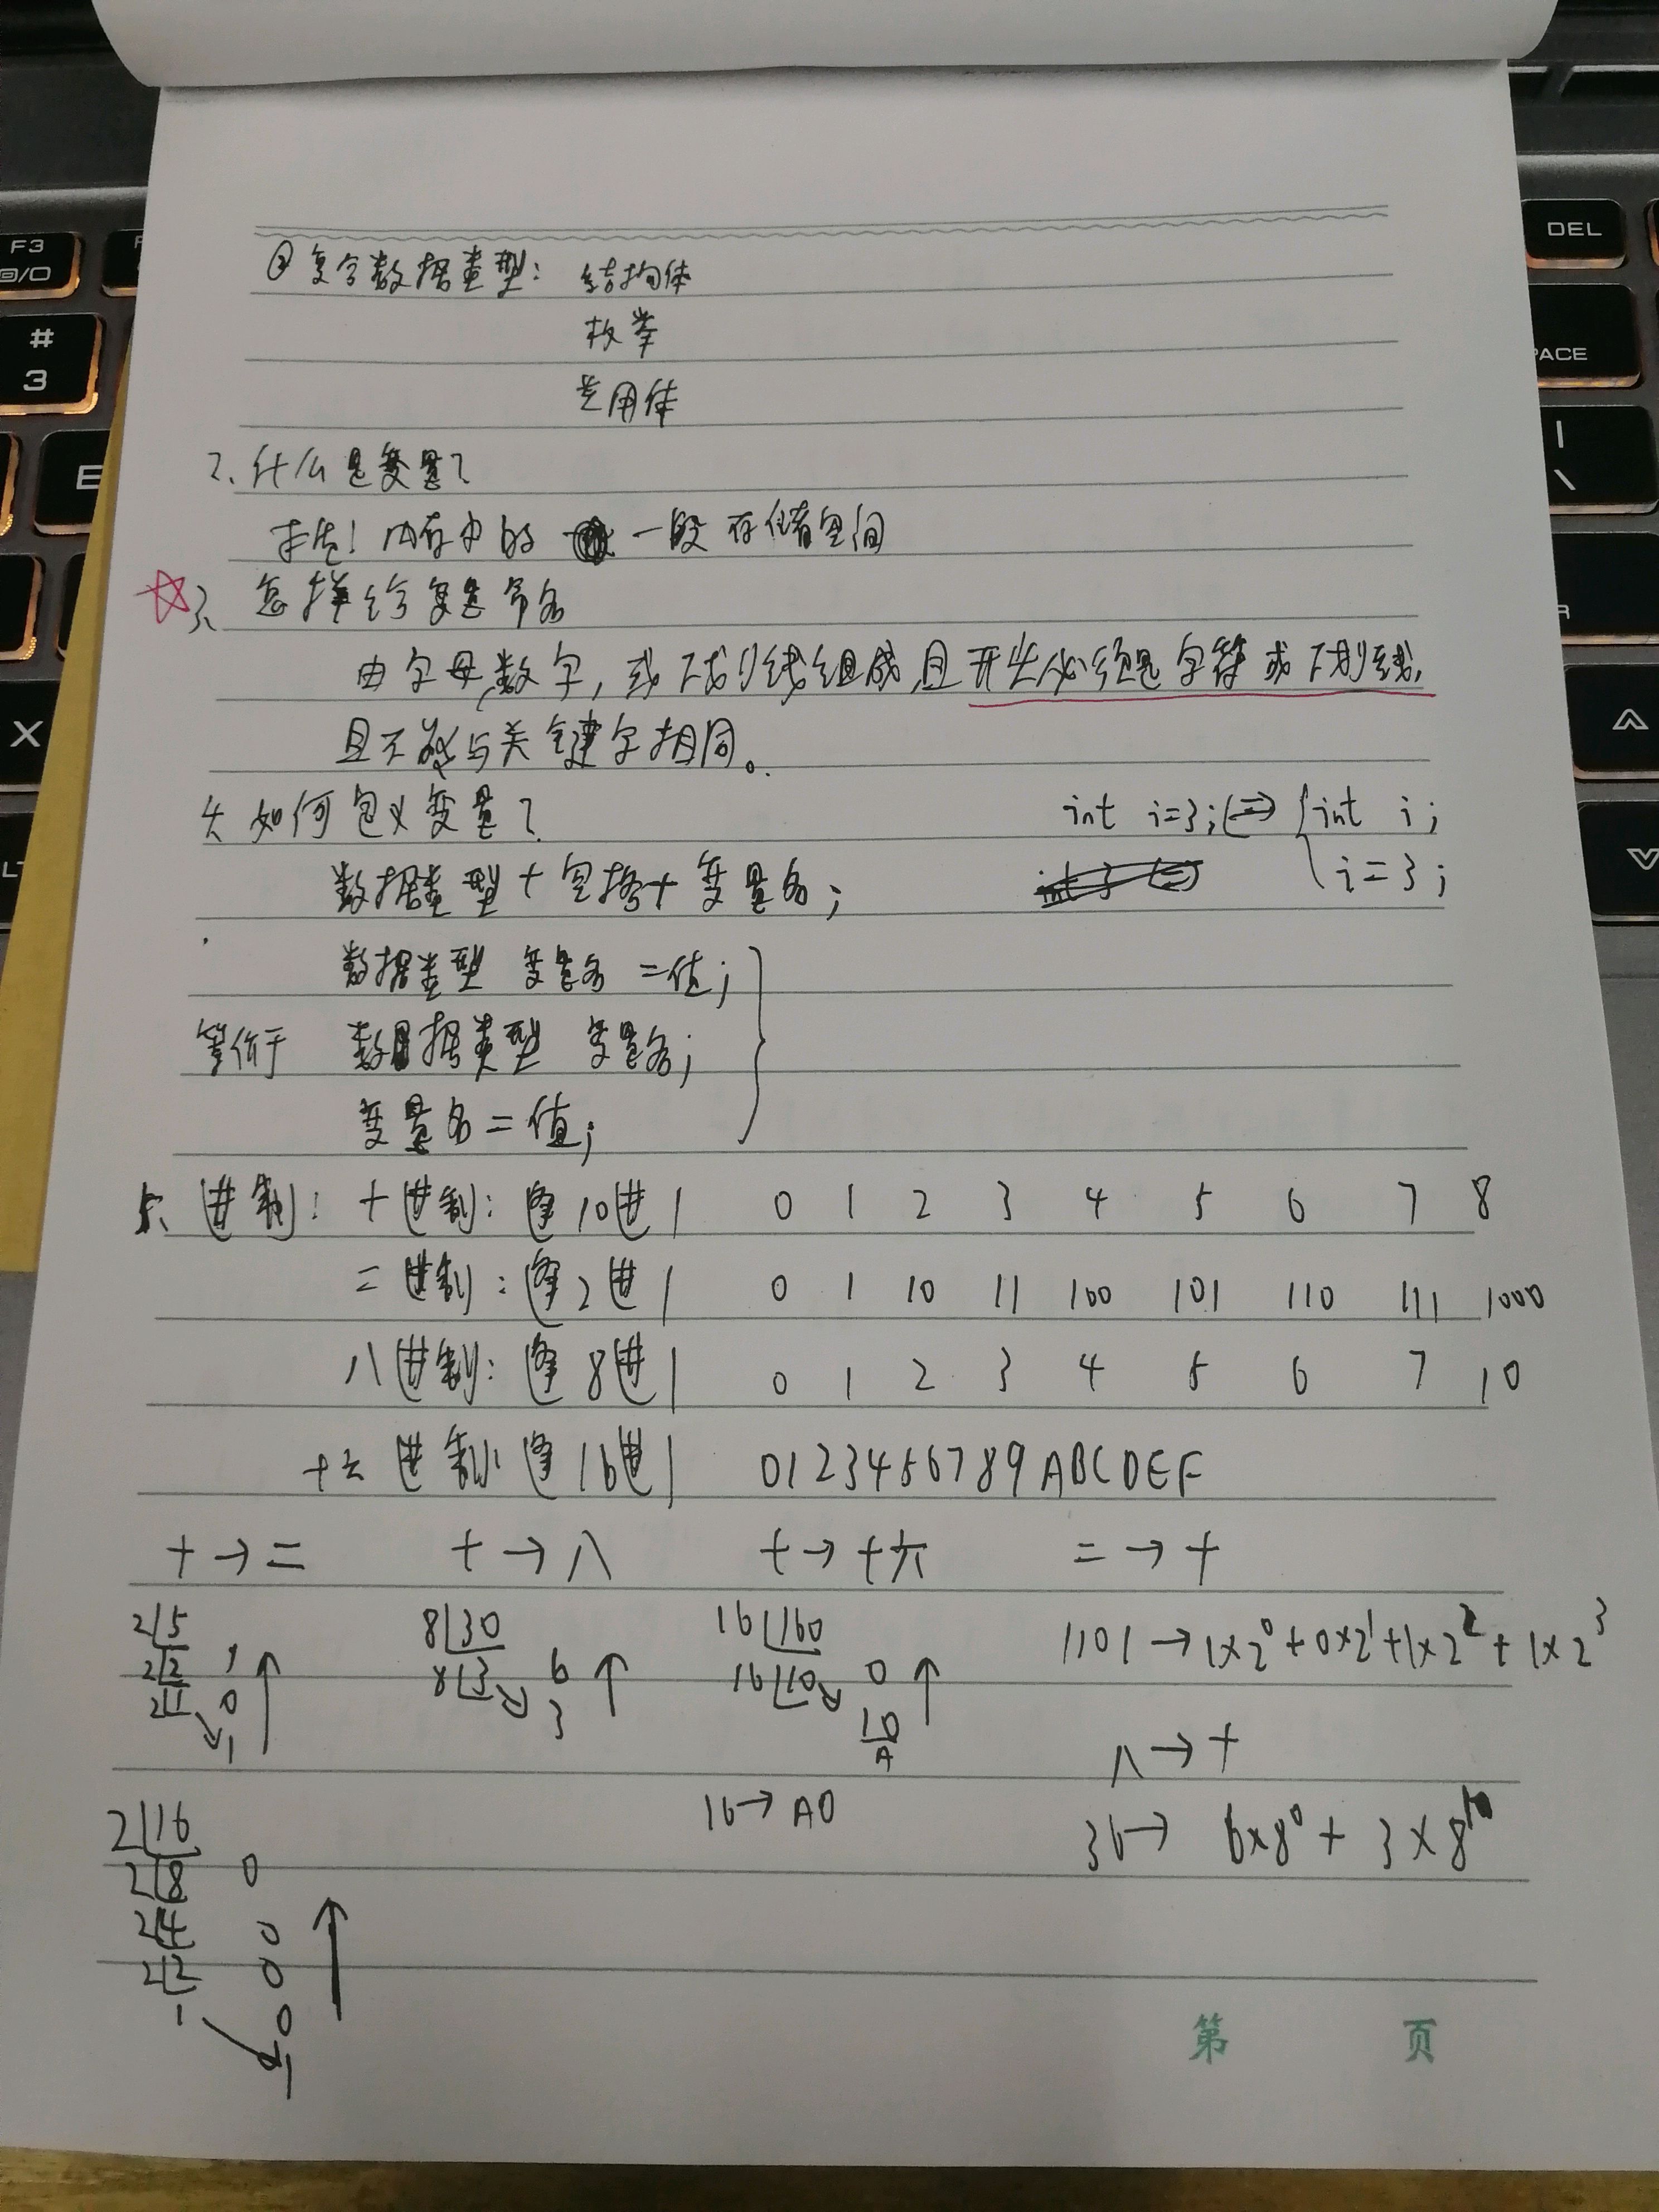 ②复合数据类型: 结构体
枚举
共用体
2、什么是变量?
本质! 内存中的 一段存储空间
☆3、怎样给变量命名
由字母,数字,或下划线组成,且开头必须是字符或下划线,
且不能与关键字相同。
4、如何定义变量? int i=3; ⇔ { int i;
数据类型+空格+变量名; i=3;
数据类型 变量名 =值;
等价于 数据类型 变量名;
变量名=值;
5、进制: 十进制: 逢10进1 0 1 2 3 4 5 6 7 8
二进制: 逢2进1 0 1 10 11 100 101 110 111 1000
八进制: 逢8进1 0 1 2 3 4 5 6 7 10
十六进制: 逢16进1 0123456789ABCDEF
十→二 十→八 十→十六 二→十
2|5 8|30 16|160 1101→1×2⁰+0×2¹+1×2²+1×2³
2|2 1 8|3 6 16|10 0
2|1 0 3 10
1 A 八→十
16→A0
2|16 36→ 6×8⁰+3×8
2|8 0
2|4 0
2|2 0
1 0
1
第 页
F3
#
3
E
X
DEL
PACE
|
\